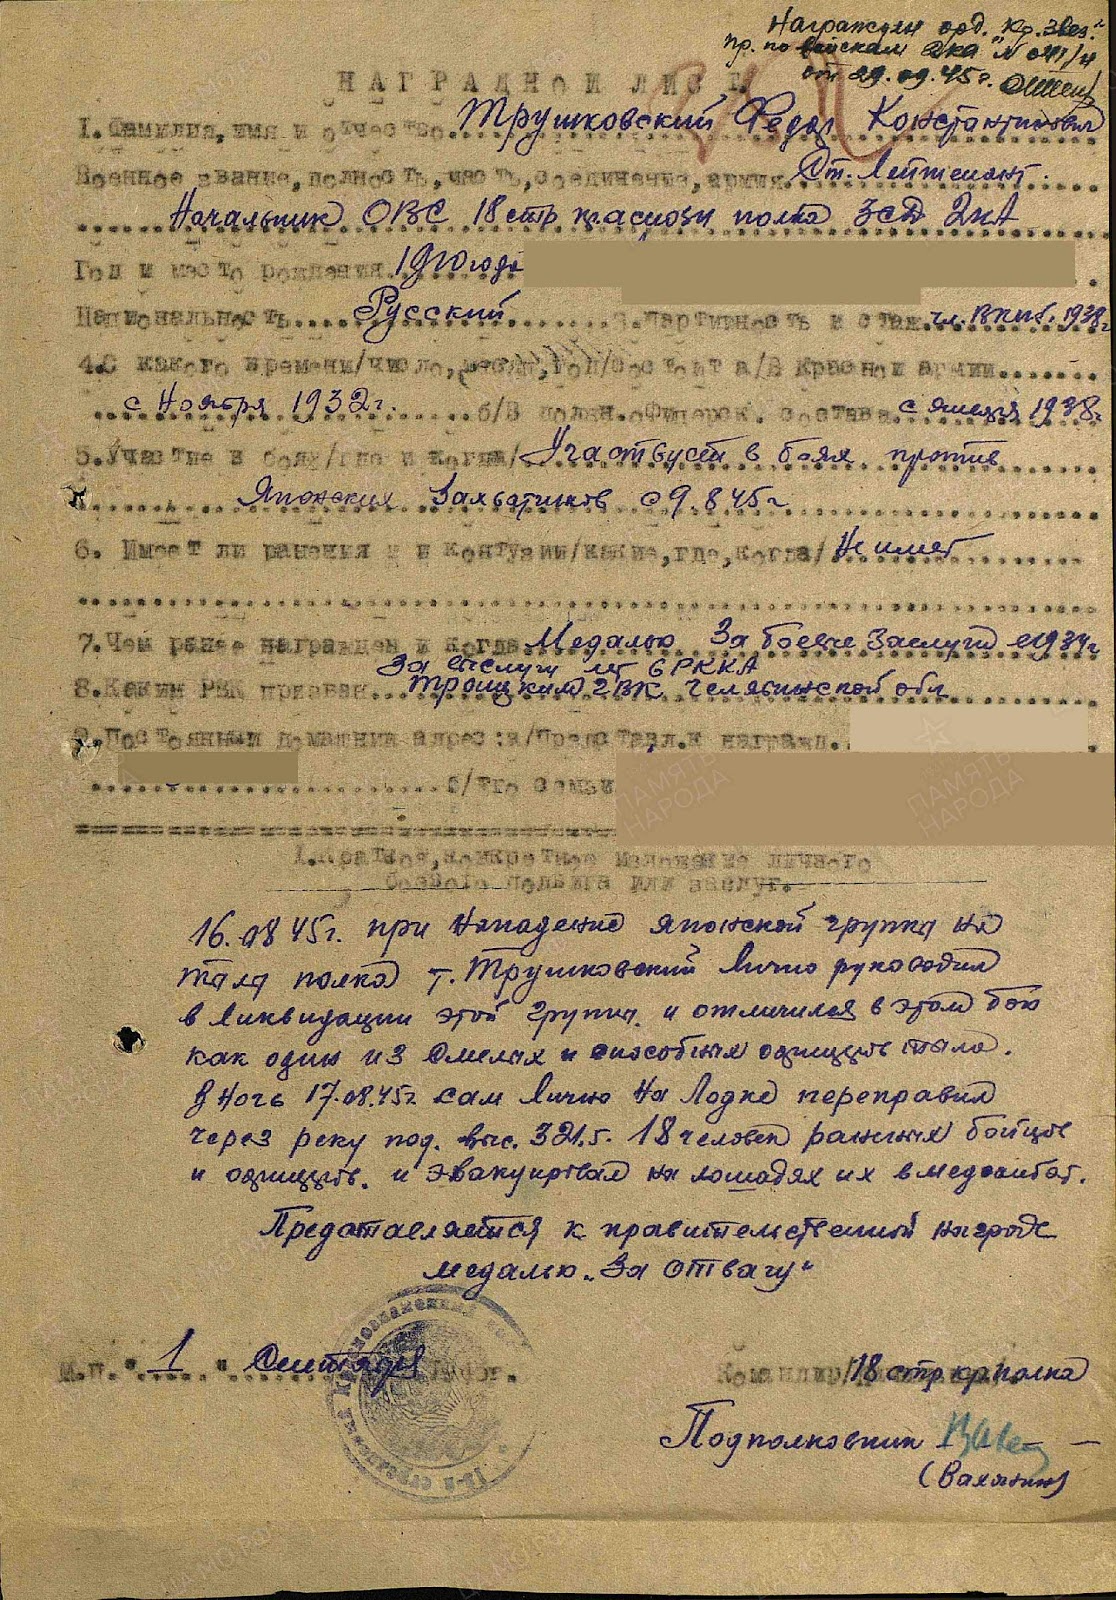 Награжден орд. "Кр. Звез."
пр. по войскам 2ка № 041/н
от 29.09.45г.
НАГРАДНОЙ ЛИСТ
1. Фамилия, имя и отчество Трушковский Федор Константинович
Военное звание, должность, часть, соединение, армия Ст. Лейтенант.
Начальник ОВС 18 стр краснозн полка 3сд 2кА
Год и место рождения 1910 года
Национальность Русский 3. Партийность и стаж чл. ВКПб. 1938г
4. С какого времени/число, месяц, год/состоит а/В Красной армии
с Ноября 1932г. б/В должн. офицерск. состава с января 1938г
5. Участие в боях/где и когда/ Участвует в боях против
Японских Захватчиков с 9.8 45г
6. Имеет ли ранения и контузии/какие, где, когда/ Не имеет
7. Чем ранее награжден и когда Медалью За боевые Заслуги
За выслугу лет в РККА
8. Каким РВК призван Троицким ГВК Челябинской обл
9. Постоянный домашний адрес: а/Представл. к награжд.
б/его семьи
1. Краткое, конкретное изложение личного
боевого подвига или заслуг.
16.08 45г. при Нападение японской группы на
тыла полка т. Трушковский Лично руководил
в Ликвидации этой группы. и отличился в этом бою
как один из Смелых и способных офицеров тыла.
В Ночь 17.08.45г. сам Лично На Лодке переправил
через реку под. выс. 321.5. 18 человек раненых бойцов
и офицеров. и эвакуировал на лошадях их в медсанбат.
Представляется к правительственной награде
медалью „За отвагу"
М.П. "1" Сентября
Командир 18 стр кр полка
Подполковник